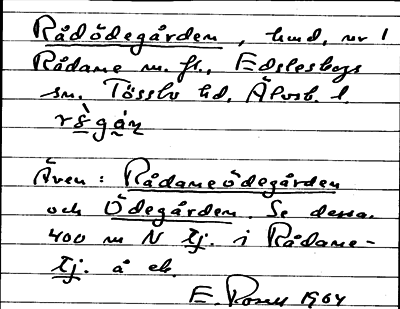 Rådödegården, hmd, nr 1
Rådane m. fl., Edsleskogs
sn. Tössbo hd. Älvsb. l.
Även: Rådaneödegården
och Ödegården. Se dessa.
400 m N tj. i Rådane-
tj. å ek.
E. 1964